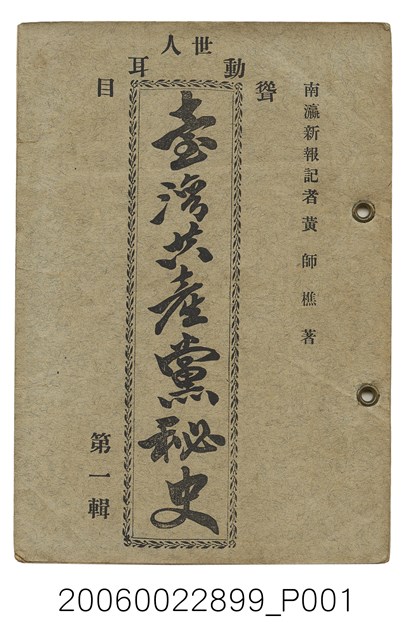 聳動世人耳目
南瀛新報記者 黃師樵 著
臺灣共產黨秘史
第一輯
20060022899_P001